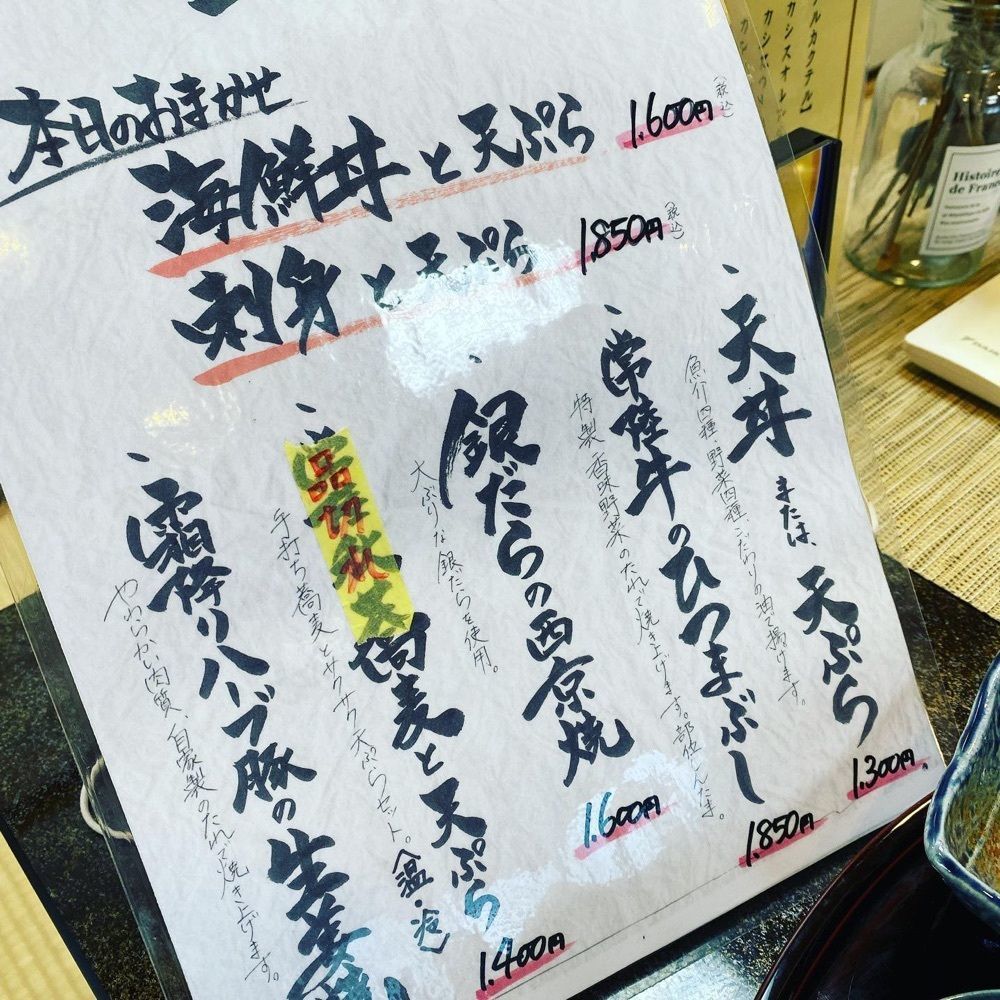 本日のおまかせ
海鮮丼と天ぷら 1.600円(税込)
刺身と天ぷら 1.850円(税込)
、天丼または、天ぷら 1.300円
魚介四種、野菜四種、こだわりの油で揚げます。
、常陸牛のひつまぶし 1.850円
特製香味野菜のたれで焼き上げます。
、銀だらの西京焼 1.600円
大ぶりな銀だらを使用。
品切れ
蕎麦と天ぷら 1.400円
手打ち蕎麦とサクサク天ぷらセット。(温・冷)
、霜降りハーブ豚の生姜焼
やわらかい肉質、自家製のたれで焼き上げます。
Histoire
de Fran